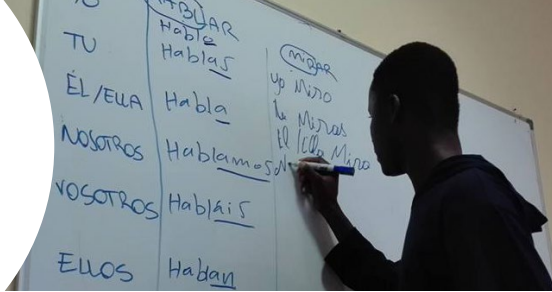 TU
ÉL/ELLA
NOSOTROS
VOSOTROS
ELLOS
HABLAR
Hablo
Hablas
Habla
Hablamos
Habláis
Hablan
MIRAR
yo Miro
tu Miras
El/Ella Mira